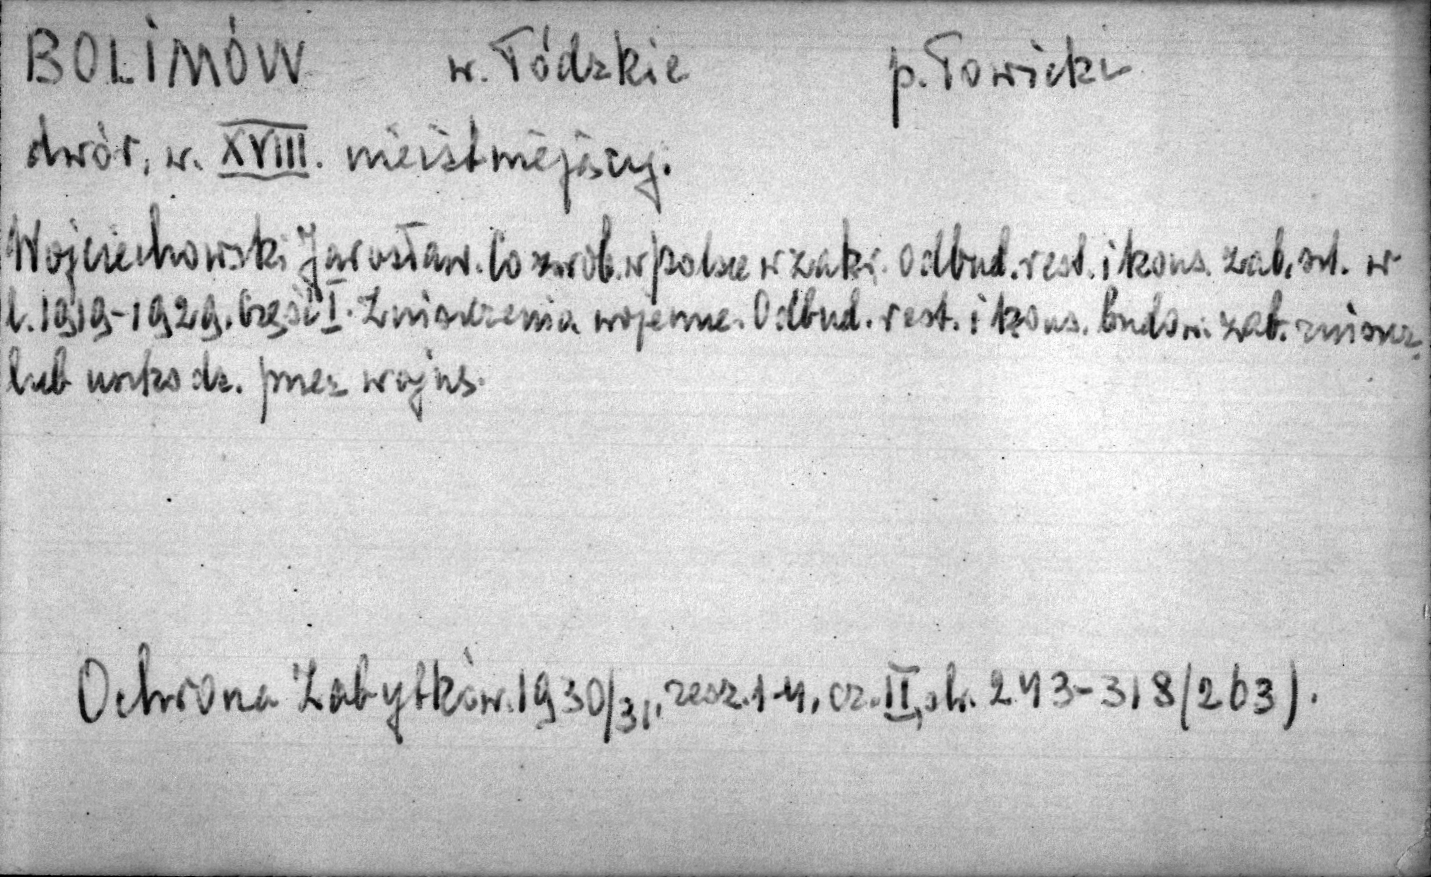 BOLIMÓW w. Łódzkie p. Łowicki
dwór, w. XVIII. nieistniejący.
Wojciechowski Jarosław. Co zrob. w Polsce w zakr. Odbud. rest. i kons. zab. szt. w
l. 1919-1929. Część I. Zniszczenia wojenne. Odbud. rest. i kons. budow. zab. zniszcz.
lub uszkodz. przez wojnę.
Ochrona Zabytków. 1930/31, zesz. 1-4, cz. II, str. 243-318/263).